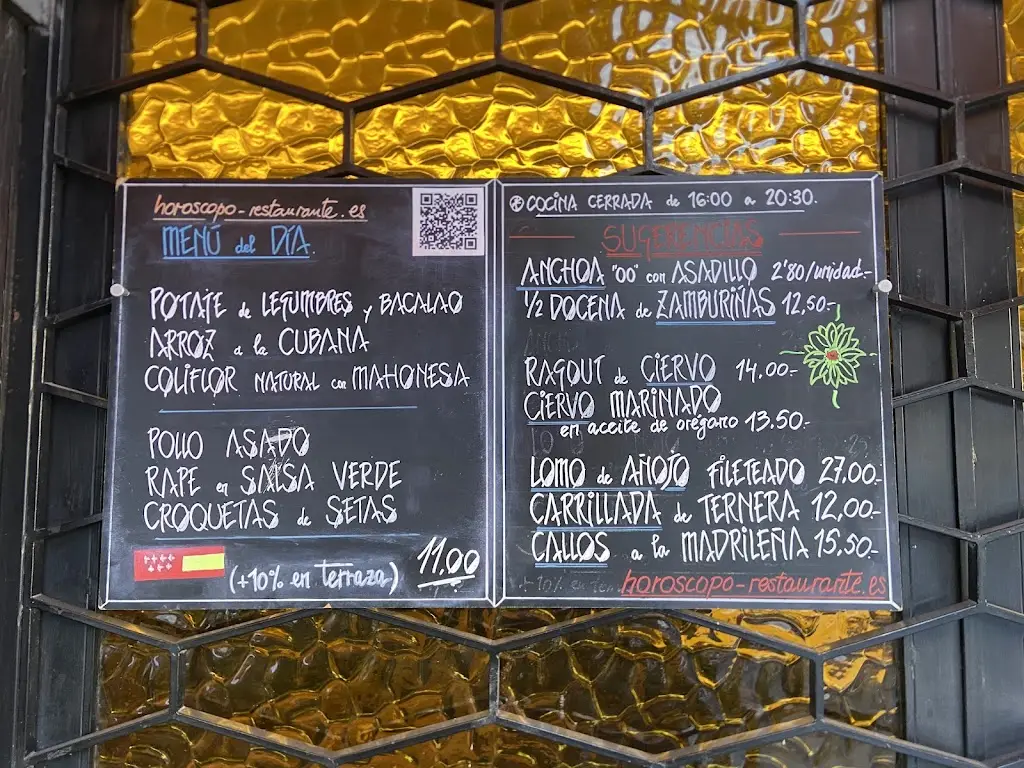 horoscopo-restaurante.es
MENÚ del DÍA
POTAJE de LEGUMBRES y BACALAO
ARROZ a la CUBANA
COLIFLOR NATURAL con MAHONESA
POLLO ASADO
RAPE en SALSA VERDE
CROQUETAS de SETAS
(+10% en terraza) 11.00
COCINA CERRADA de 16:00 a 20:30.
SUGERENCIAS
ANCHOA "00" con ASADILLO 2'80/unidad.-
1/2 DOCENA de ZAMBURIÑAS 12,50.-
RAGOUT de CIERVO 14.00.-
CIERVO MARINADO
en aceite de orégano 13.50.-
LOMO de AÑOJO FILETEADO 27.00.-
CARRILLADA de TERNERA 12,00.-
CALLOS a la MADRILEÑA 15.50.-
+10% en
horoscopo-restaurante.es